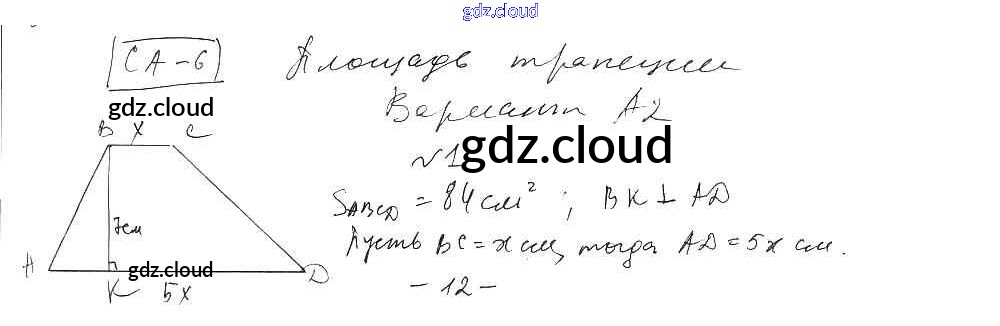 gdz.cloud
СА-6 Площадь трапеции
gdz.cloud
Вариант А2
B x C
№1
gdz.cloud
S_ABCD = 84 см² ; BK ⊥ AD
7см
Пусть BC = x см, тогда AD = 5x см.
A gdz.cloud D
K 5x
- 12 -